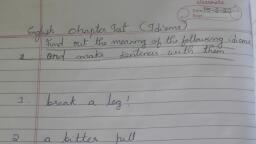 English Chapter Test (Idioms)
Find out the meaning of the following idioms
and make sentences with them
1. break a leg!
2 a bitter pill